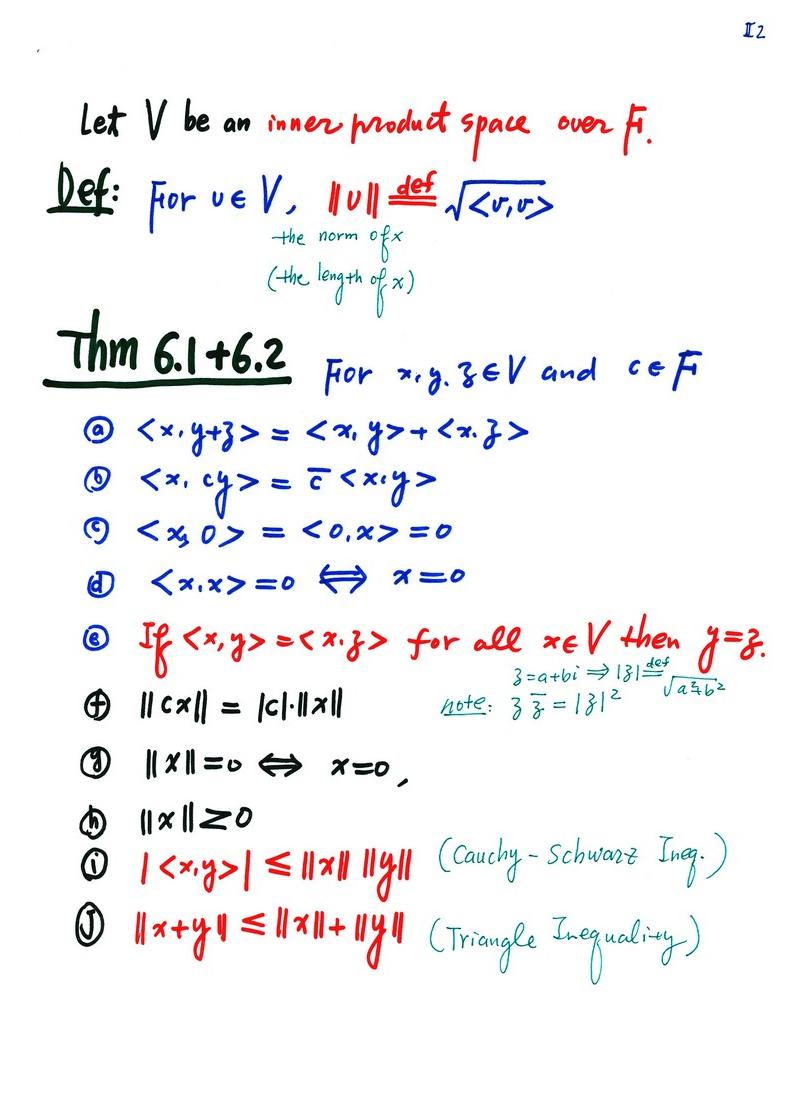 II2
Let V be an inner product space over F.
Def: For v ∈ V, ||v|| def= √<v,v>
the norm of x
(the length of x)
Thm 6.1+6.2 For x, y, z ∈ V and c ∈ F
ⓐ <x, y+z> = <x, y> + <x, z>
ⓑ <x, cy> = c̅ <x, y>
ⓒ <x, 0> = <0, x> = 0
ⓓ <x, x> = 0 ⟺ x = 0
ⓔ If <x, y> = <x, z> for all x ∈ V then y = z.
z = a+bi ⇒ |z| def= √a²+b²
ⓕ ||cx|| = |c|·||x|| note: z z̅ = |z|²
ⓖ ||x|| = 0 ⟺ x = 0,
ⓗ ||x|| ≥ 0
ⓘ |<x, y>| ≤ ||x|| ||y|| (Cauchy-Schwarz Ineq.)
ⓙ ||x+y|| ≤ ||x|| + ||y|| (Triangle Inequality)